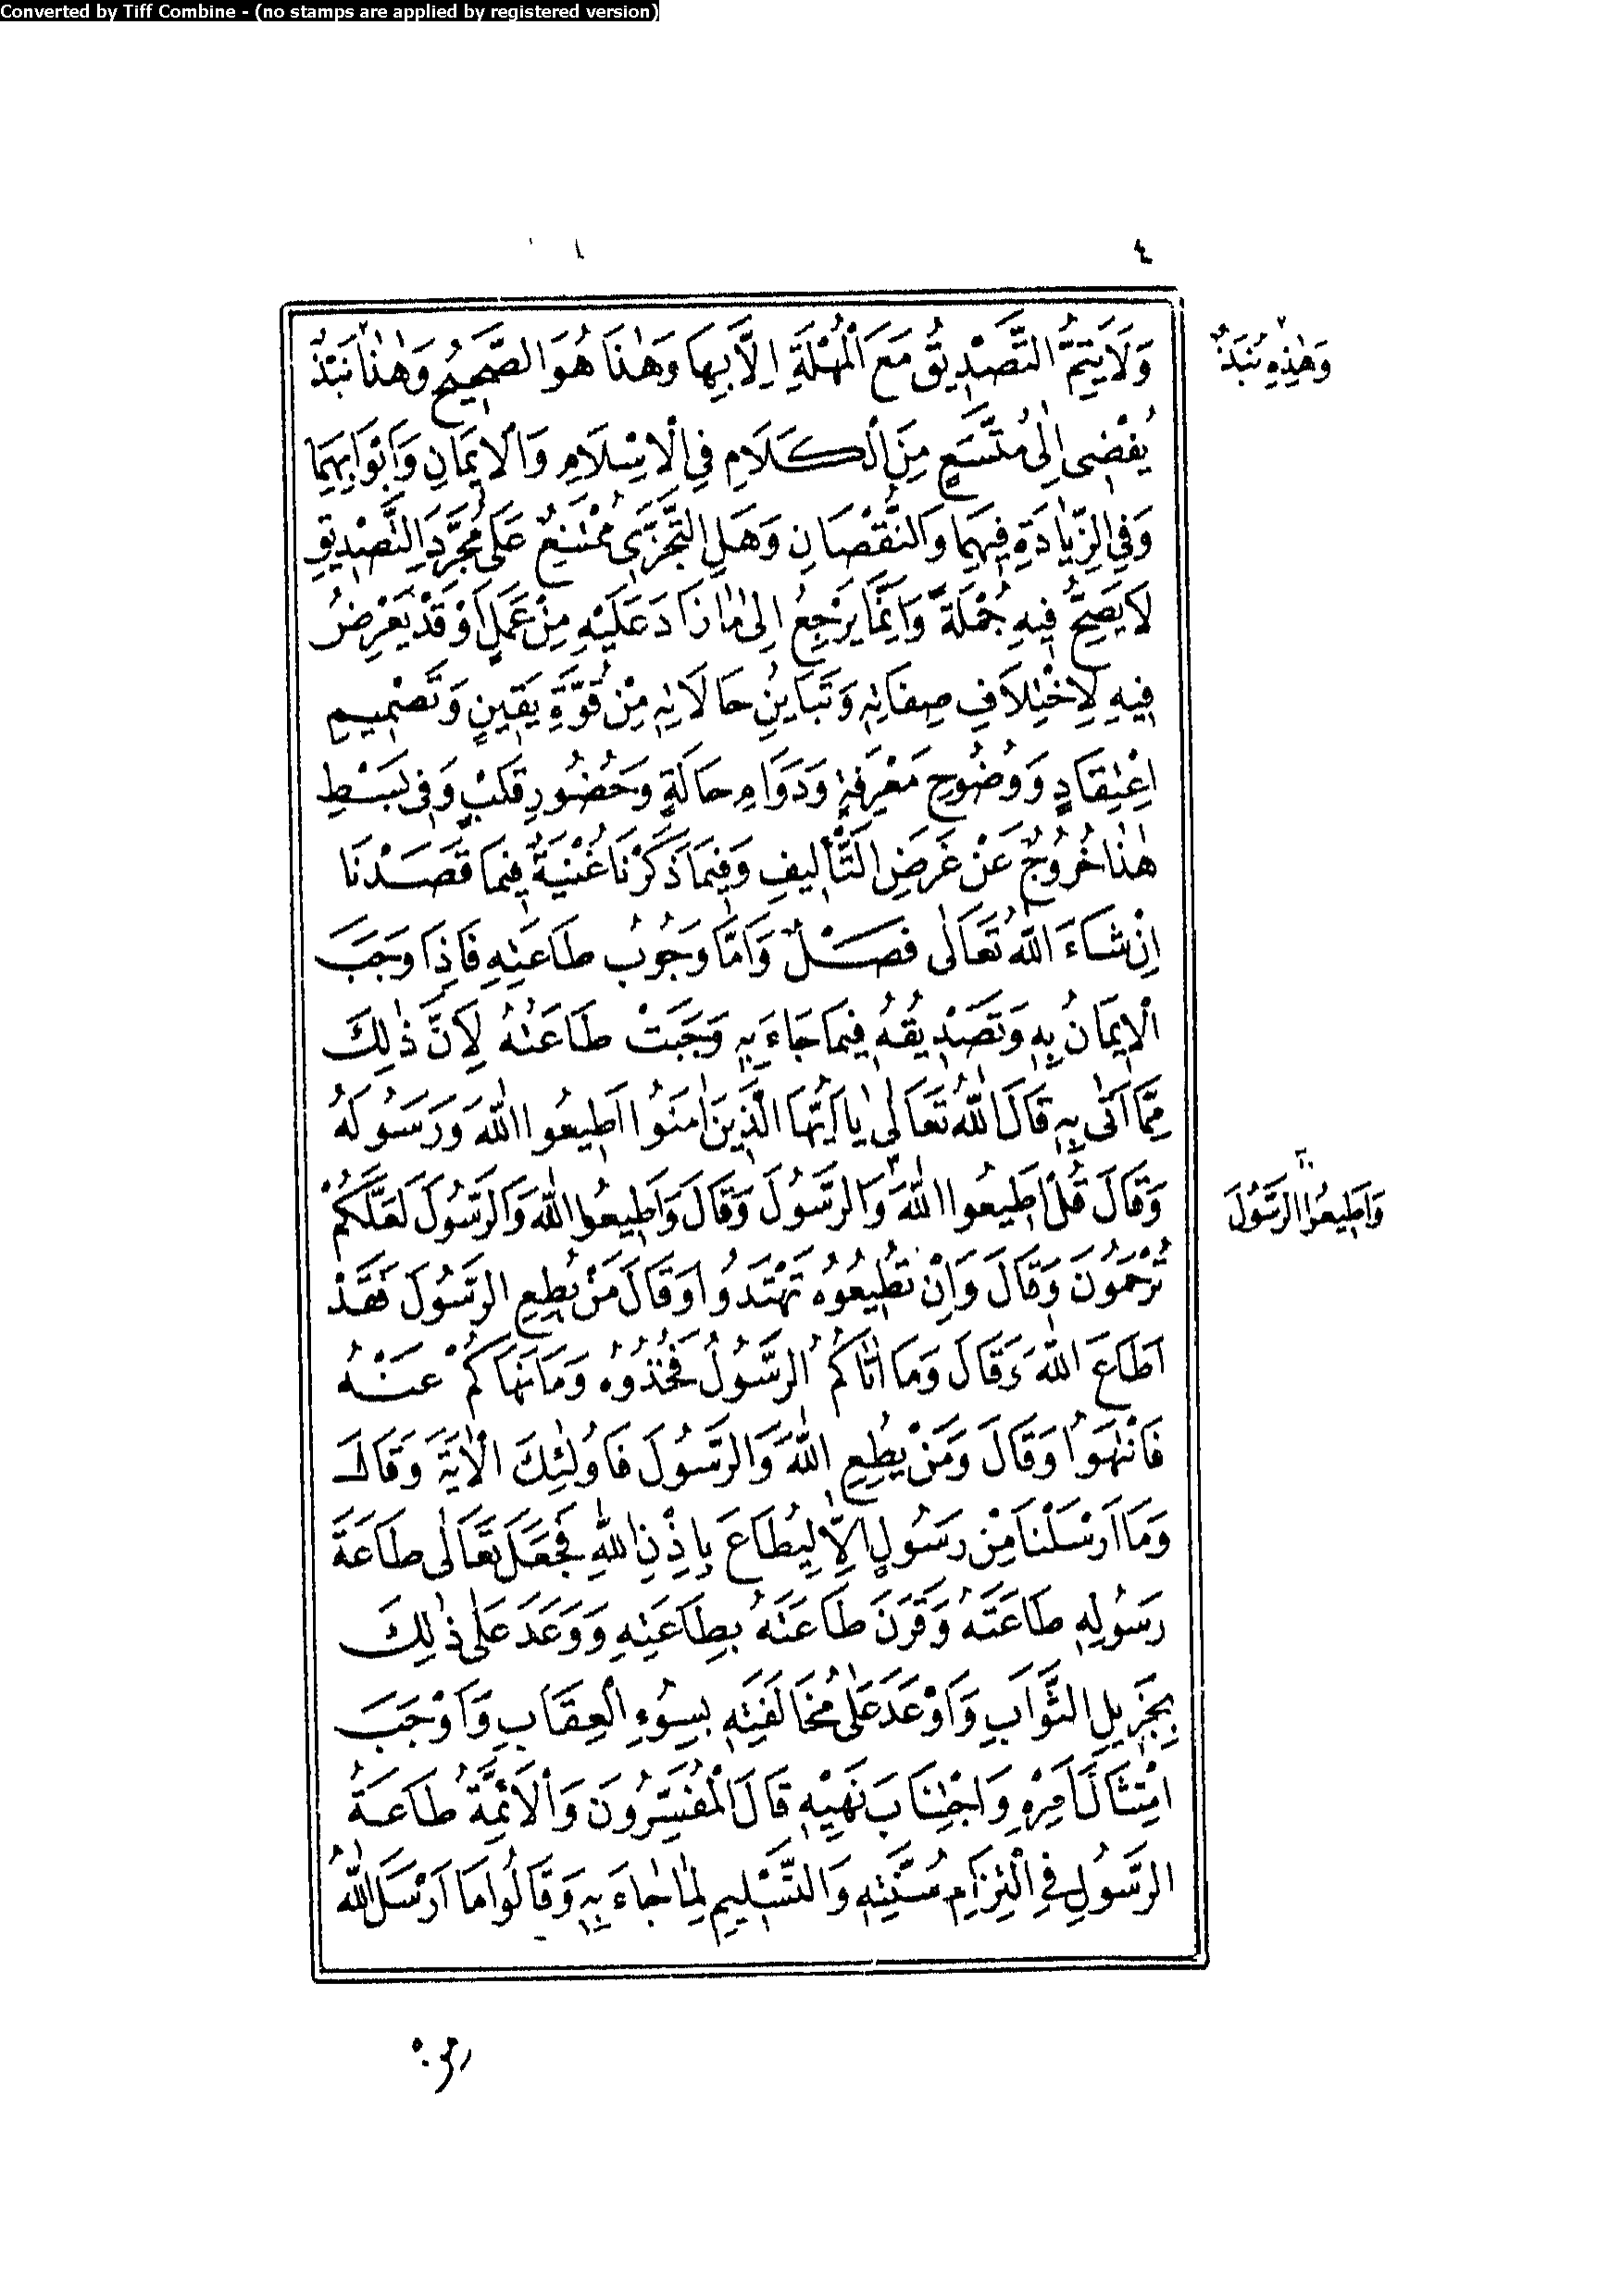 Converted by Tiff Combine - (no stamps are applied by registered version)
٤
وَلَا يَتِمُّ التَّصْدِيقُ مَعَ الْمُهْلَةِ اِلَّا بِهَا وَهٰذَا هُوَ الصَّحِيحُ وَهٰذَا نَبْذٌ
وَهٰذِهِ نُبَذٌ
يُفْضِى اِلٰى مُتَّسَعٍ مِنَ الْكَلَامِ فِى الْاِسْلَامِ وَالْاِيمَانِ وَاَبْوَابِهِمَا
وَفِى الزِّيَادَةِ فِيهِمَا وَالنُّقْصَانِ وَهَلِ التَّجَزِّى مُمْتَنِعٌ عَلٰى مُجَرَّدِ التَّصْدِيقِ
لَا يَصِحُّ فِيهِ جُمْلَةً وَاِنَّمَا يَرْجِعُ اِلٰى مَا زَادَ عَلَيْهِ مِنْ عَمَلٍ اَوْ قَدْ يَعْرِضُ
فِيهِ لِاخْتِلَافِ صِفَاتِهِ وَتَبَايُنِ حَالَاتِهِ مِنْ قُوَّةِ يَقِينٍ وَتَصْمِيمِ
اِعْتِقَادٍ وَوُضُوحِ مَعْرِفَةٍ وَدَوَامِ حَالَةٍ وَحُضُورِ قَلْبٍ وَفِى بَسْطِ
هٰذَا خُرُوجٌ عَنْ غَرَضِ التَّأْلِيفِ وَفِيمَا ذَكَرْنَا غُنْيَةٌ فِيمَا قَصَدْنَا
اِنْ شَاءَ اللّٰهُ تَعَالٰى فَصْلٌ وَاَمَّا وُجُوبُ طَاعَتِهِ فَاِذَا وَجَبَ
الْاِيمَانُ بِهِ وَتَصْدِيقُهُ فِيمَا جَاءَ بِهِ وَجَبَتْ طَاعَتُهُ لِاَنَّ ذٰلِكَ
مِمَّا اَتٰى بِهِ قَالَ اللّٰهُ تَعَالٰى يَا اَيُّهَا الَّذِينَ اٰمَنُوا اَطِيعُوا اللّٰهَ وَرَسُولَهُ
وَقَالَ قُلْ اَطِيعُوا اللّٰهَ وَالرَّسُولَ وَقَالَ وَاَطِيعُوا اللّٰهَ وَالرَّسُولَ لَعَلَّكُمْ
وَاَطِيعُوا الرَّسُولَ
تُرْحَمُونَ وَقَالَ وَاِنْ تُطِيعُوهُ تَهْتَدُوا وَقَالَ مَنْ يُطِعِ الرَّسُولَ فَقَدْ
اَطَاعَ اللّٰهَ وَقَالَ وَمَا اٰتَاكُمُ الرَّسُولُ فَخُذُوهُ وَمَا نَهَاكُمْ عَنْهُ
فَانْتَهُوا وَقَالَ وَمَنْ يُطِعِ اللّٰهَ وَالرَّسُولَ فَاُولٰئِكَ الْاٰيَةَ وَقَالَ
وَمَا اَرْسَلْنَا مِنْ رَسُولٍ اِلَّا لِيُطَاعَ بِاِذْنِ اللّٰهِ فَجَعَلَ تَعَالٰى طَاعَةَ
رَسُولِهِ طَاعَتَهُ وَقَرَنَ طَاعَتَهُ بِطَاعَتِهِ وَوَعَدَ عَلٰى ذٰلِكَ
بِجَزِيلِ الثَّوَابِ وَاَوْعَدَ عَلٰى مُخَالَفَتِهِ بِسُوءِ الْعِقَابِ وَاَوْجَبَ
امْتِثَالَ اَمْرِهِ وَاجْتِنَابَ نَهْيِهِ قَالَ الْمُفَسِّرُونَ وَالْاَئِمَّةُ طَاعَةُ
الرَّسُولِ فِى الْتِزَامِ سُنَّتِهِ وَالتَّسْلِيمِ لِمَا جَاءَ بِهِ وَقَالُوا مَا اَرْسَلَ اللّٰهُ